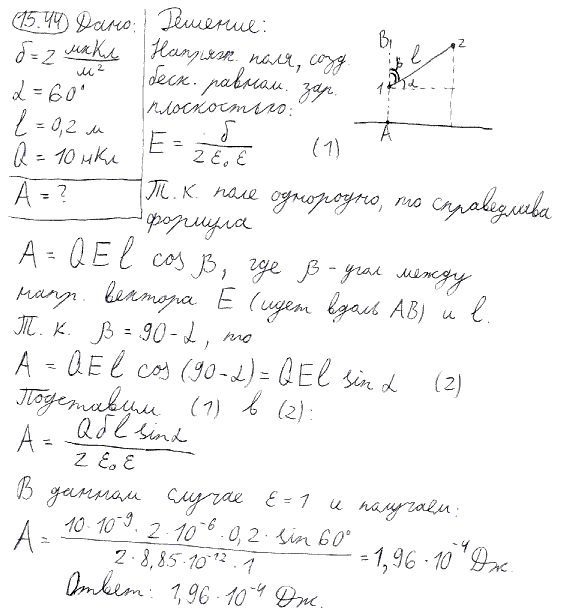 15.44 Дано: Решение:
δ = 2 мкКл/м²
α = 60°
l = 0,2 м
Q = 10 нКл
A = ?
Напряж. поля, созд.
беск. равном. зар.
плоскостью:
E = δ / 2 ε₀ ε (1)
B 2
β l
1 α
A
Т. к. поле однородно, то справедлива
формула
A = Q E l cos β, где β - угол между
напр. вектора E (идет вдоль AB) и l.
Т. к. β = 90 - α, то
A = Q E l cos (90 - α) = Q E l sin α (2)
Подставим (1) в (2):
A = Q δ l sin α / 2 ε₀ ε
В данном случае ε = 1 и получаем:
A = 10 · 10⁻⁹ · 2 · 10⁻⁶ · 0,2 · sin 60° / 2 · 8,85 · 10⁻¹² · 1 = 1,96 · 10⁻⁴ Дж.
Ответ: 1,96 · 10⁻⁴ Дж.